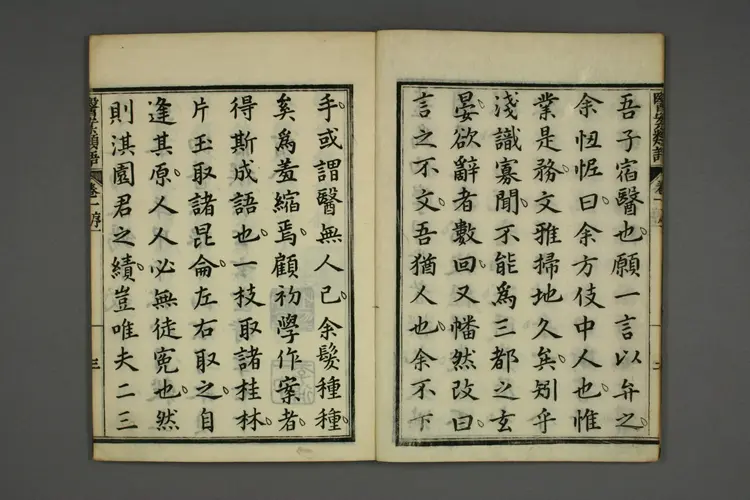 醫案類語 卷一 序
吾子宿醫也。願一言以弁之。
余忸怩曰。余方伎中人也。惟
業是務。文雅掃地久矣。矧乎
淺識寡聞。不能爲三都之玄
晏。欲辭者數回。又幡然改曰。
言之不文。吾猶人也。余不下
手。或謂醫無人已。余髮種種。
矣爲羞縮焉。顧初學作案者。
得斯成語也。一枝取諸桂林。
片玉取諸昆侖。左右取之。自
逢其原。人人必無徒寃也。然
則淇園君之績。豈唯夫二三
醫案類語 卷一 序 三